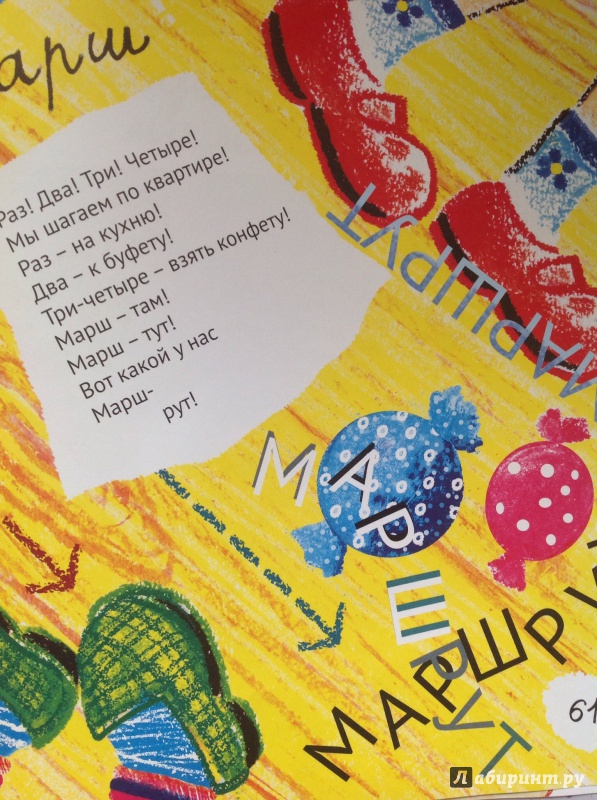 арш
Раз! Два! Три! Четыре!
Мы шагаем по квартире!
Раз – на кухню!
Два – к буфету!
Три-четыре – взять конфету!
Марш – там!
Марш – тут!
Вот какой у нас
Марш-
рут!
МАРШРУТ
МАРШРУТ
МАРШРУ
61
Лабиринт.ру